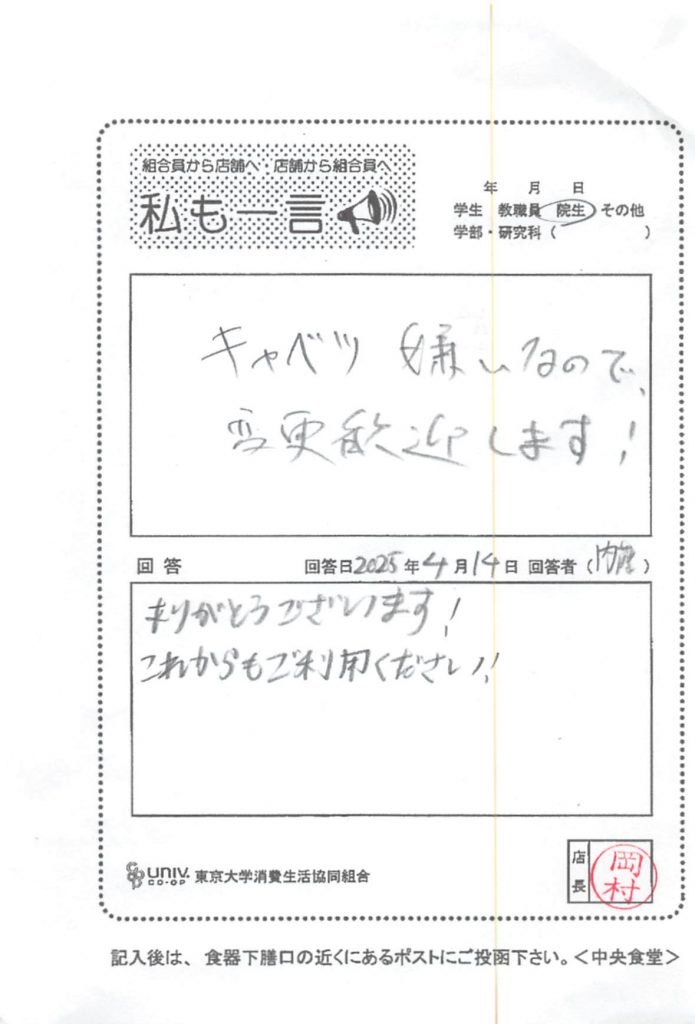 組合員から店舗へ・店舗から組合員へ
私も一言
年 月 日
学生 教職員 院生 その他
学部・研究科( )
キャベツ 嫌いなので、
変更歓迎します!
回答 回答日2025年4月14日 回答者( )
ありがとうございます!
これからもご利用ください!
UNIV. CO-OP 東京大学消費生活協同組合
店長 岡村
記入後は、食器下膳口の近くにあるポストにご投函下さい。<中央食堂>